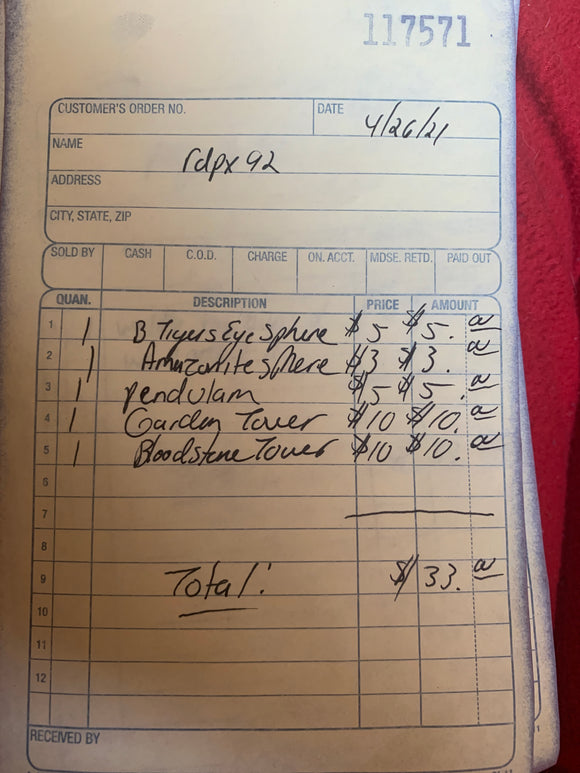 117571
CUSTOMER'S ORDER NO. DATE 4/26/21
NAME rdpx92
ADDRESS
CITY, STATE, ZIP
SOLD BY CASH C.O.D. CHARGE ON. ACCT. MDSE. RETD. PAID OUT
QUAN. DESCRIPTION PRICE AMOUNT
1 1 B Tigers Eye Sphere $5 $5. 00
2 1 Amazonite sphere $3 $3. 00
3 1 pendulam $5 $5. 00
4 1 Garden Tower $10 $10. 00
5 1 Bloodstone Tower $10 $10. 00
6
7
8
9 Total: $33. 00
10
11
12
RECEIVED BY